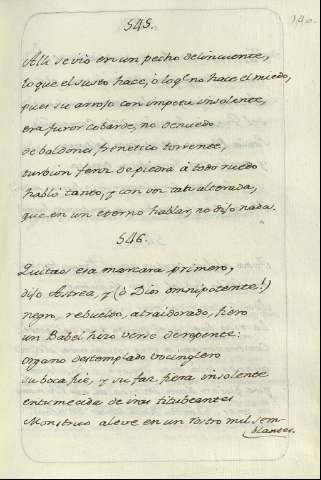 545.
140.
Alli se vió en un pecho delincuente,
lo que el susto hace, ó loq.e no hace el miedo,
pues su arrojo con impetu insolente,
era furor cobarde, no denuedo
de baldones frenetico torrente,
turbion feroz de piedra á todo ruedo
habló tanto, y con voz tan alterada,
que en un eterno hablar, no dijo nada.
546.
Quitaos esa mascara primero,
dijo Astrea, y (ó Dios omnipotente!)
negro, rebuelto, atraidorado, fiero
un Babel hizo verse derepente:
organo destemplado vocinglero
su boca fué, y su faz fiera insolente
entumecida de iras titubeantes
Monstruo aleve en un rostro mil sem-
blantes.